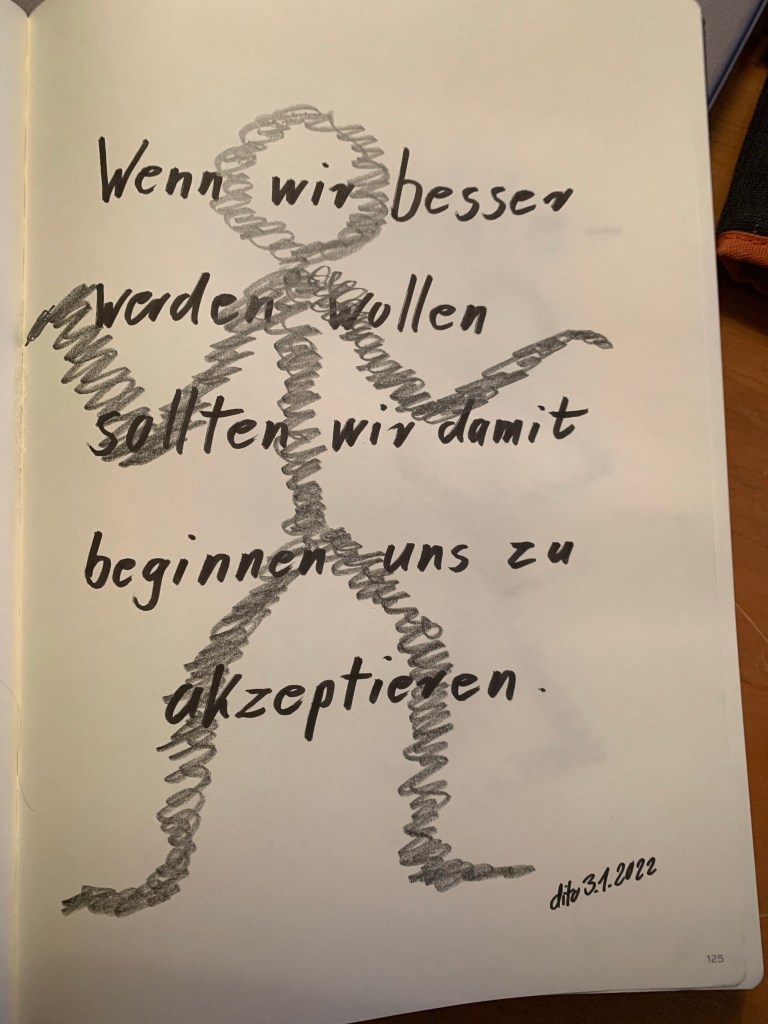 Wenn wir besser
werden wollen
sollten wir damit
beginnen uns zu
akzeptieren.
dito 3.1.2022
125